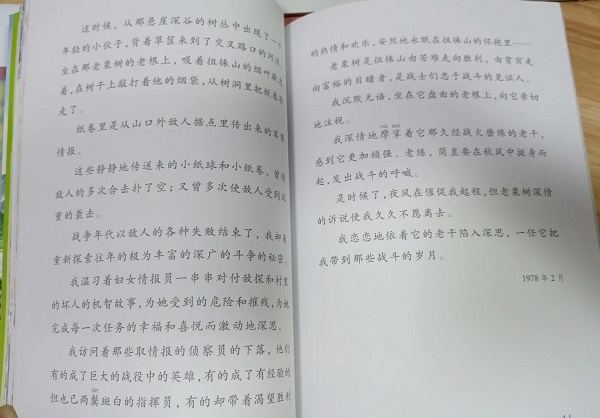 这时候，从那悬崖深谷的树丛中出现了一个
年轻的小伙子，背着草筐来到了交叉路口的河
坐在那老栗树的老根上，吸着徂徕山的烟叶
着，在树干上敲打着他的烟袋，从树洞里把纸卷
走了。
纸卷里是从山口外敌人据点里传出来的
情报。
这些静静地传送来的小纸球和小纸卷，曾使
敌人的多次合击扑了空；又曾多次使敌人受到沉
重的袭击。
战争年代以敌人的各种失败结束了，我却
重新探索往年的极为丰富的深广的斗争的秘密。
我温习着妇女情报员一串串对付敌探和村里
的坏人的机智故事，为她受到的危险和摧残，为她
完成每一次任务的幸福和喜悦而激动地深思。
我访问着那些取情报的侦察员的下落，他们
有的成了巨大的战役中的英雄，有的成了有经验的
bìn
但也已两鬓斑白的指挥员，有的却带着渴望胜利
的热情和欢乐，安然地永眠在徂徕山的怀抱里……
老栗树是徂徕山由苦难走向胜利，由贫穷走
向富裕的目睹者，是战士们忠于战斗的见证人。
我沉默无语，坐在它盘曲的老根上，向它亲切
地注视。
我深情地摩挲着它那久经战火磨炼的老干，
感到它更加顽强、老练，简直要在秋风中挺身而
起，发出战斗的呼喊。
是时候了，夜风在催促我起程，但老栗树深情
的诉说使我久久不愿离去。
我恋恋地依着它的老干陷入深思，一任它把
我带到那些战斗的岁月。
1978 年 2 月